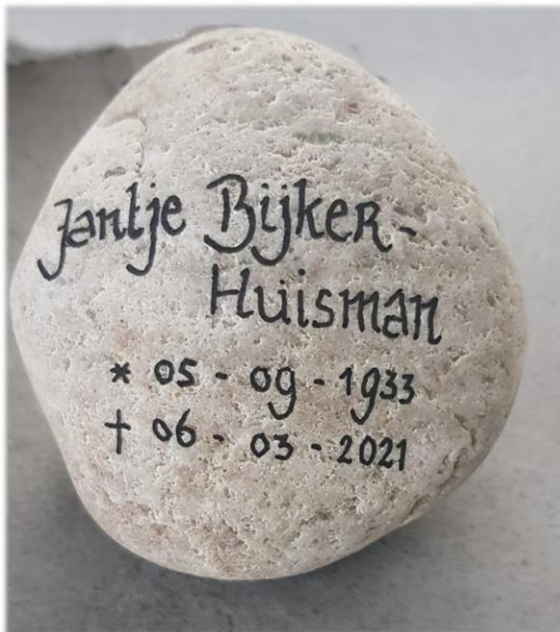 Jantje Bijker-
Huisman
* 05 - 09 - 1933
† 06 - 03 - 2021